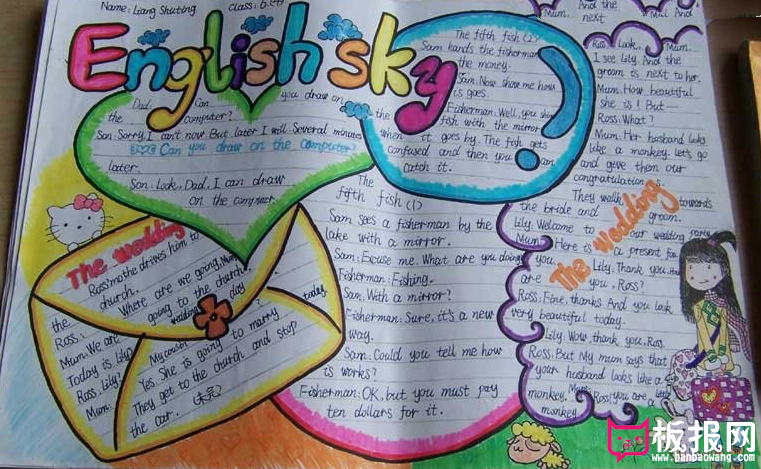 Name: Liang Shuting
Class:
English sky
Dad. Can you draw on
the computer?
Son: Sorry, I can't now. But later I will. Several minutes
Can you draw on the computer?
later.
Son: Look, Dad. I can draw
on the computer.
The fifth fish (2)
Sam hands the fisherman
the money.
Sam: Now show me how
is goes.
Fisherman: Well, you shine
the
fish with the mirror
when it goes by. The fish gets
confused and then you can
catch it.
The
fifth fish (1)
Sam sees a fisherman by the
lake with a mirror.
Sam: Excuse me. What are you doing?
Fisherman: Fishing.
Sam: With a mirror?
Fisherman: Sure, it's a new
way.
Sam: Could you tell me how
is works?
Fisherman: OK, but you must pay
ten dollars for it.
The wedding
Ross' mother drives him to
the church.
Ross: Where are we going, Mum?
Mum: We are going to the church.
Today is Lily's wedding day
Ross: Lily?
Mum: My cousin
today.
Yes. She is going to marry
They get to the church and stop
the car.
And the
next
Mum. And
Ross: Look, Mum.
I see Lily. And the
groom is next to her.
Mum: How beautiful
she is! But—
Ross: What?
Mum: Her husband looks
like a monkey. Let's go
and give them our
congratulations.
They walk towards
the bride and groom.
Lily: Welcome to our wedding party
Mum: Here is a present for
you.
The wedding
Lily: Thank you. How
are you, Ross?
Ross: Fine, thanks. And you look
very beautiful today.
Lily: Wow, thank you, Ross.
Ross: But my mum says that
your husband looks like a
monkey.
Mum: Ross! you are a little
monkey
板报网
www.banbaowang.com